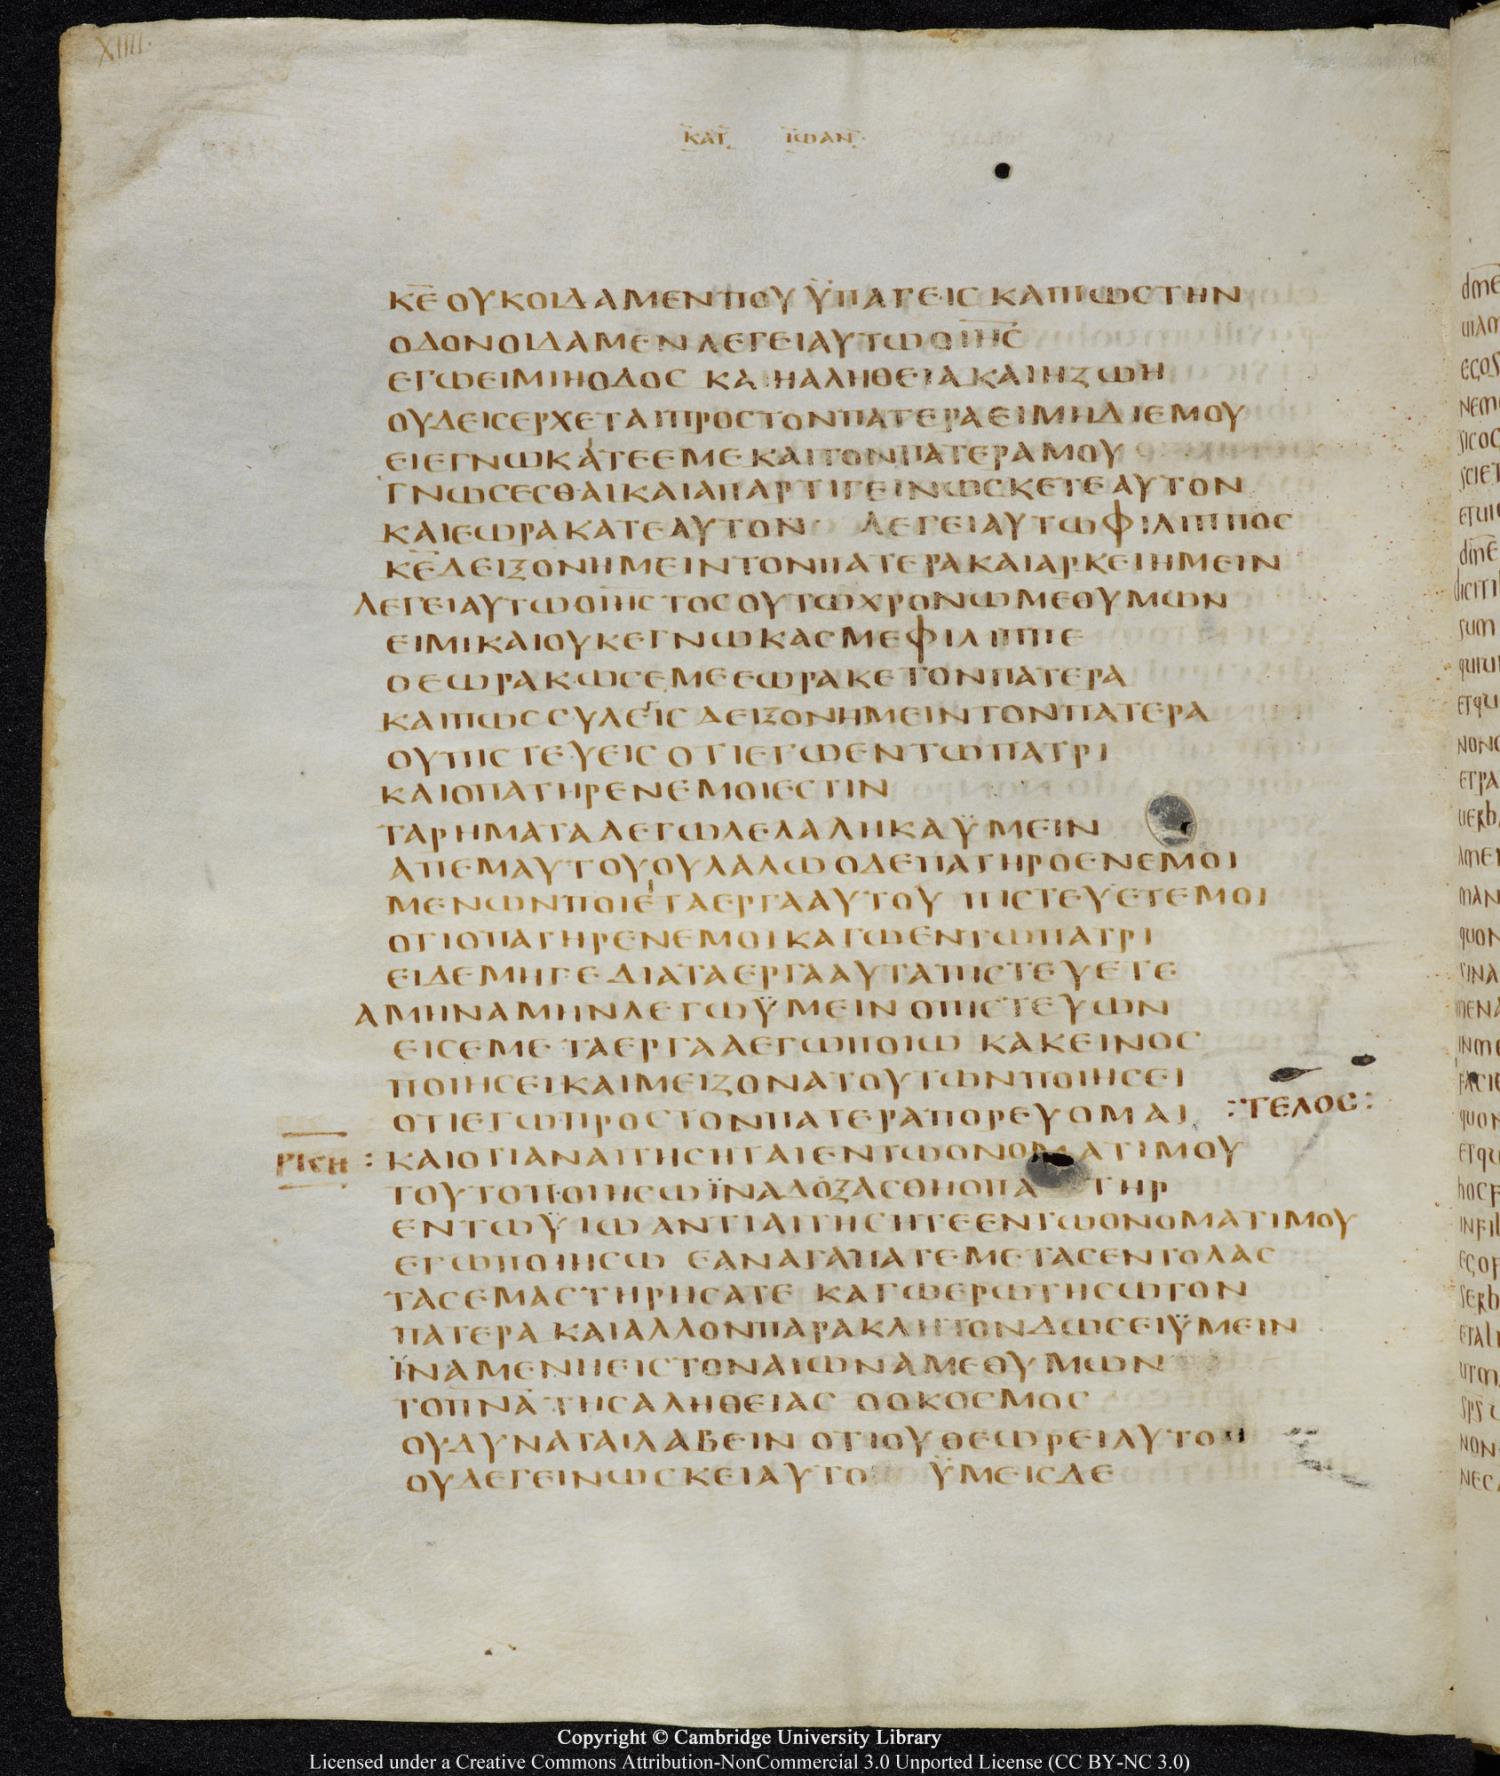 XIIII
ΚΑΤ ΙΩΑΝ
Κ̅Ε̅ ΟΥΚΟΙΔΑΜΕΝΠΟΥ ΫΠΑΓΕΙΣ ΚΑΙΠΩΣΤΗΝ
ΟΔΟΝΟΙΔΑΜΕΝ ΛΕΓΕΙΑΥΤΩΟΙ̅Η̅Σ̅
ΕΓΩΕΙΜΙΗΟΔΟΣ ΚΑΙΗΑΛΗΘΕΙΑΚΑΙΗΖΩΗ
ΟΥΔΕΙΣΕΡΧΕΤΑΙΠΡΟΣΤΟΝΠΑΤΕΡΑΕΙΜΗΔΙΕΜΟΥ
ΕΙΕΓΝΩΚΑΤΕΕΜΕΚΑΙΤΟΝΠΑΤΕΡΑΜΟΥ
ΓΝΩΣΕΣΘΑΙΚΑΙΑΠΑΡΤΙΓΕΙΝΩΣΚΕΤΕΑΥΤΟΝ
ΚΑΙΕΩΡΑΚΑΤΕΑΥΤΟΝ ΛΕΓΕΙΑΥΤΩΦΙΛΙΠΠΟΣ
Κ̅Ε̅ΔΕΙΞΟΝΗΜΕΙΝΤΟΝΠΑΤΕΡΑΚΑΙΑΡΚΕΙΗΜΕΙΝ
ΛΕΓΕΙΑΥΤΩΟΙ̅Η̅Σ̅ΤΟΣΟΥΤΩΧΡΟΝΩΜΕΘΥΜΩΝ
ΕΙΜΙΚΑΙΟΥΚΕΓΝΩΚΑΣΜΕΦΙΛΙΠΠΕ
ΟΕΩΡΑΚΩΣΕΜΕΕΩΡΑΚΕΤΟΝΠΑΤΕΡΑ
ΚΑΙΠΩΣΣΥΛΕΓΙΣ ΔΕΙΞΟΝΗΜΕΙΝΤΟΝΠΑΤΕΡΑ
ΟΥΠΙΣΤΕΥΕΙΣ ΟΤΙΕΓΩΕΝΤΩΠΑΤΡΙ
ΚΑΙΟΠΑΤΗΡΕΝΕΜΟΙΕΣΤΙΝ
ΤΑΡΗΜΑΤΑΑΕΓΩΛΕΛΑΛΗΚΑΫΜΕΙΝ
ΑΠΕΜΑΥΤΟΥΟΥΛΑΛΩΟΔΕΠΑΤΗΡΟΕΝΕΜΟΙ
ΜΕΝΩΝΠΟΙΕΙΤΑΕΡΓΑΑΥΤΟΥ ΠΙΣΤΕΥΕΤΕΜΟΙ
ΟΤΙΟΠΑΤΗΡΕΝΕΜΟΙΚΑΓΩΕΝΤΩΠΑΤΡΙ
ΕΙΔΕΜΗΓΕΔΙΑΤΑΕΡΓΑΑΥΤΑΠΙΣΤΕΥΕΤΕ
ΑΜΗΝΑΜΗΝΛΕΓΩΫΜΕΙΝ ΟΠΙΣΤΕΥΩΝ
ΕΙΣΕΜΕ ΤΑΕΡΓΑΑΕΓΩΠΟΙΩ ΚΑΚΕΙΝΟΣ
ΠΟΙΗΣΕΙΚΑΙΜΕΙΖΟΝΑΤΟΥΤΩΝΠΟΙΗΣΕΙ
ΟΤΙΕΓΩΠΡΟΣΤΟΝΠΑΤΕΡΑΠΟΡΕΥΟΜΑΙ :ΤΕΛΟΣ:
: ΚΑΙΟΤΙΑΝΑΙΤΗΣΗΤΑΙΕΝΤΩΟΝΟΜΑΤΙΜΟΥ
ΤΟΥΤΟΠΟΙΗΣΩ ΪΝΑΔΟΞΑΣΘΗΟΠΑΤΗΡ
ΕΝΤΩΫΙΩ ΑΝΤΙΑΙΤΗΣΗΤΕΕΝΤΩΟΝΟΜΑΤΙΜΟΥ
ΕΓΩΠΟΙΗΣΩ ΕΑΝΑΓΑΠΑΤΕΜΕΤΑΣΕΝΤΟΛΑΣ
ΤΑΣΕΜΑΣΤΗΡΗΣΑΤΕ ΚΑΓΩΕΡΩΤΗΣΩΤΟΝ
ΠΑΤΕΡΑ ΚΑΙΑΛΛΟΝΠΑΡΑΚΛΗΤΟΝΔΩΣΕΙΫΜΕΙΝ
ΪΝΑΜΕΝΗΕΙΣΤΟΝΑΙΩΝΑΜΕΘΥΜΩΝ
ΤΟΠ̅Ν̅Α̅ΤΗΣΑΛΗΘΕΙΑΣ ΟΟΚΟΣΜΟΣ
ΟΥΔΥΝΑΤΑΙΛΑΒΕΙΝ ΟΤΙΟΥΘΕΩΡΕΙΑΥΤΟΝ
ΟΥΔΕΓΕΙΝΩΣΚΕΙΑΥΤΟ ΫΜΕΙΣΔΕ
Copyright © Cambridge University Library
Licensed under a Creative Commons Attribution-NonCommercial 3.0 Unported License (CC BY-NC 3.0)